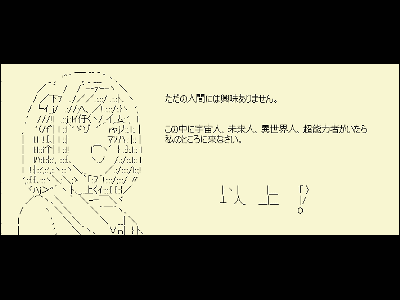 ただの人間には興味ありません。
この中に宇宙人、未来人、異世界人、超能力者がいたら
私のところに来なさい。
以上。